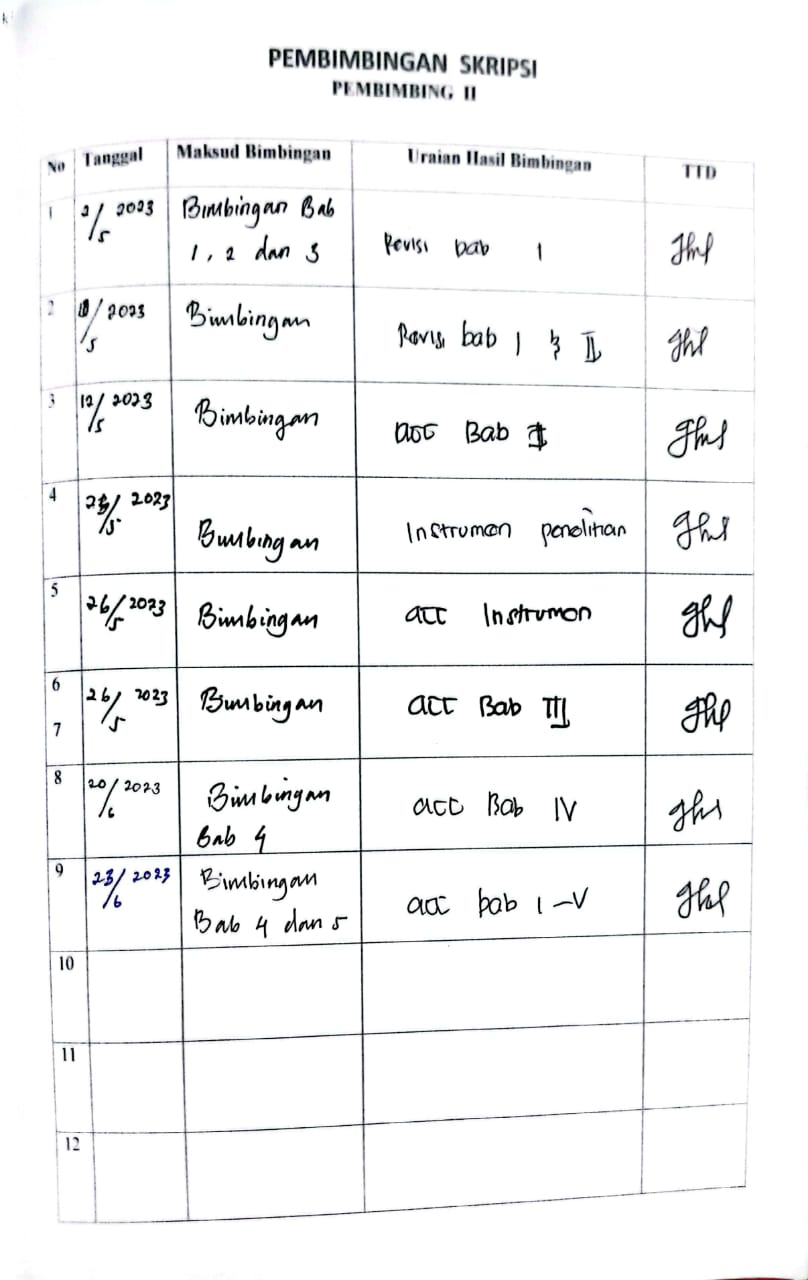 PEMBIMBINGAN SKRIPSI
PEMBIMBING II
No Tanggal Maksud Bimbingan Uraian Hasil Bimbingan TTD
1 2/5 2023 Bimbingan Bab
1, 2 dan 3 Revisi bab 1
2 10/5 2023 Bimbingan Revisi bab 1 & II
3 12/5 2023 Bimbingan acc Bab
4 /5 2023 Bimbingan Instrumen penelitian
5 26/5 2023 Bimbingan acc Instrumen
6 26/5 2023 Bimbingan acc Bab III
7
8 20/6 2023 Bimbingan acc Bab IV
Bab 4
9 23/6 2023 Bimbingan
Bab 4 dan 5 acc bab 1-V
10
11
12